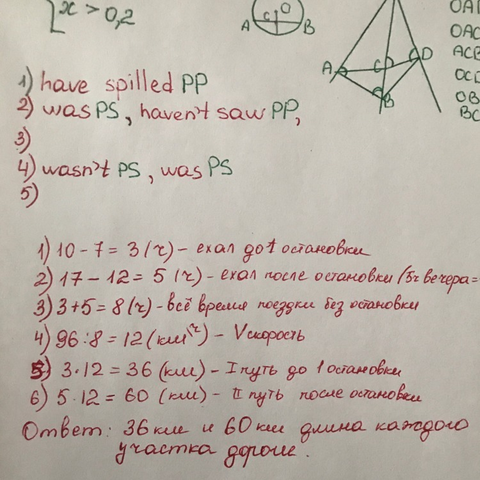 x > 0,2
A C O B
OAC
ACB
A C D
B
1) have spilled PP
2) was PS, haven't saw PP,
3)
4) wasn't PS, was PS
5)
1) 10 - 7 = 3 (ч) - ехал до 1 остановки
2) 17 - 12 = 5 (ч) - ехал после остановки (5ч вечера =
3) 3+5 = 8 (ч) - всё время поездки без остановки
4) 96 : 8 = 12 (км\ч) - V скорость
5) 3·12 = 36 (км) - I путь до 1 остановки
6) 5·12 = 60 (км) - II путь после остановки
Ответ: 36 км и 60 км длина каждого
участка дороги.